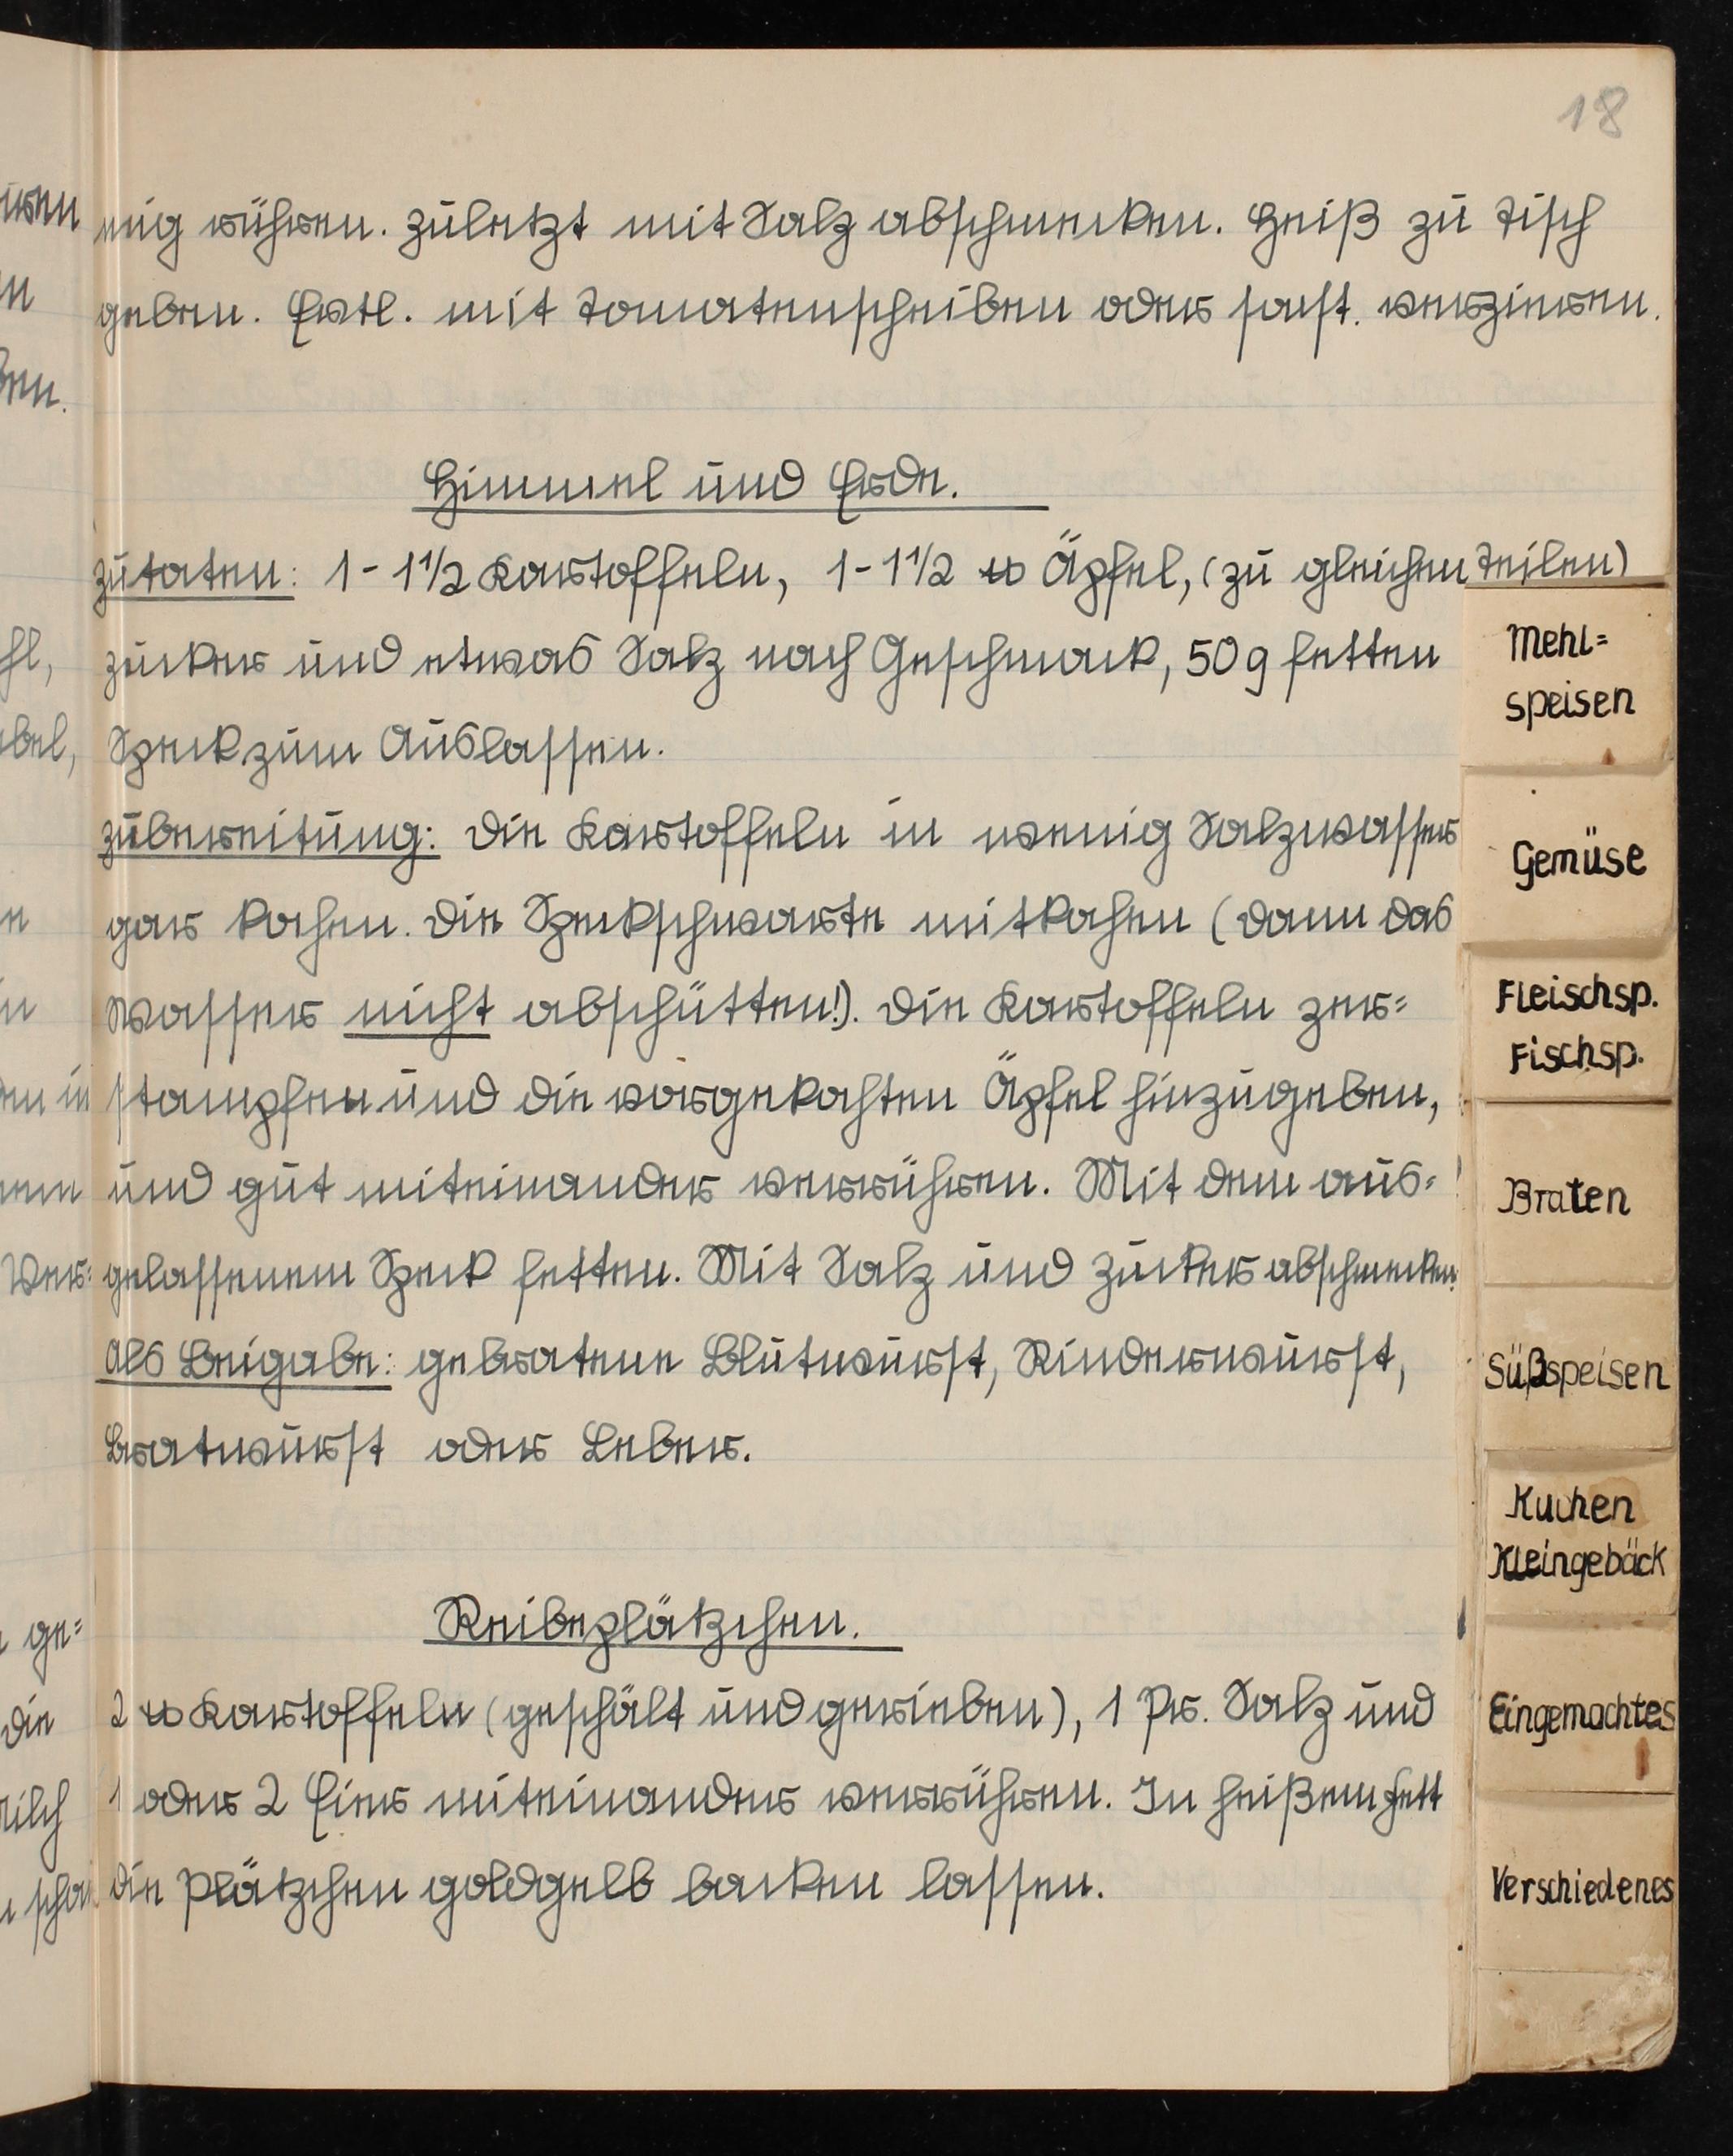 18
mig rühren. Zuletzt mit Salz abschmecken. Heiß zu Tisch
geben. Evtl. mit Tomatenscheiben oder verzieren.
Himmel und Erde.
Zutaten: 1-1½ Kartoffeln, 1-1½ ℔ Äpfel, (zu gleichen Teilen)
Zucker und etwas Salz nach Geschmack, 50 g fetten
Speck zum Auslassen.
Zubereitung: Die Kartoffeln in wenig Salzwasser
gar kochen. Die Speckschwarte mitkochen (dann das
Wasser nicht abschütten!). Die Kartoffeln zer=
stampfen und die vorgekochten Äpfel hinzugeben,
und gut miteinander verrühren. Mit dem aus=
gelassenem Speck fetten. Mit Salz und Zucker abschmecken.
Als Beigabe: gebratene Blutwurst, Rinderwurst,
Bratwurst oder Leber.
Reibeplätzchen.
2 ℔ Kartoffeln (geschält und gerieben), 1 Pr. Salz und
1 oder 2 Eier miteinander verrühren. In heißem Fett
die Plätzchen goldgelb backen lassen.
Mehl=
speisen
Gemüse
Fleischsp.
Fischsp.
Braten
Süßspeisen
Kuchen
Kleingebäck
Eingemachtes
Verschiedenes